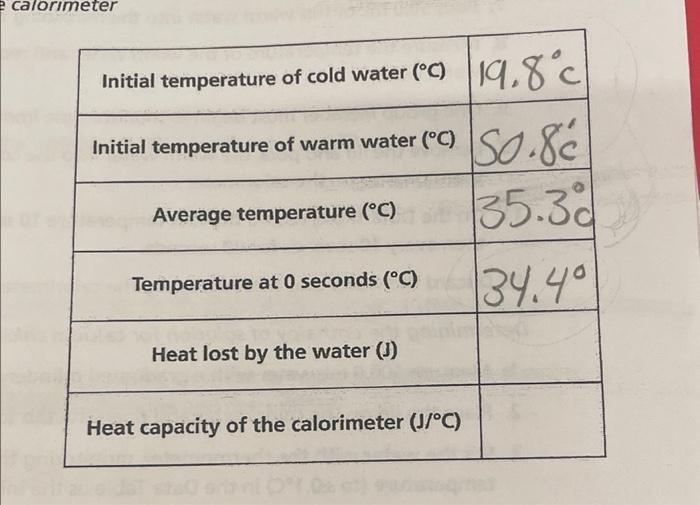 calorimeter
Initial temperature of cold water (°C) 19.8°C
Initial temperature of warm water (°C) 50.8°C
Average temperature (°C) 35.3°C
Temperature at 0 seconds (°C) 34.4°
Heat lost by the water (J)
Heat capacity of the calorimeter (J/°C)